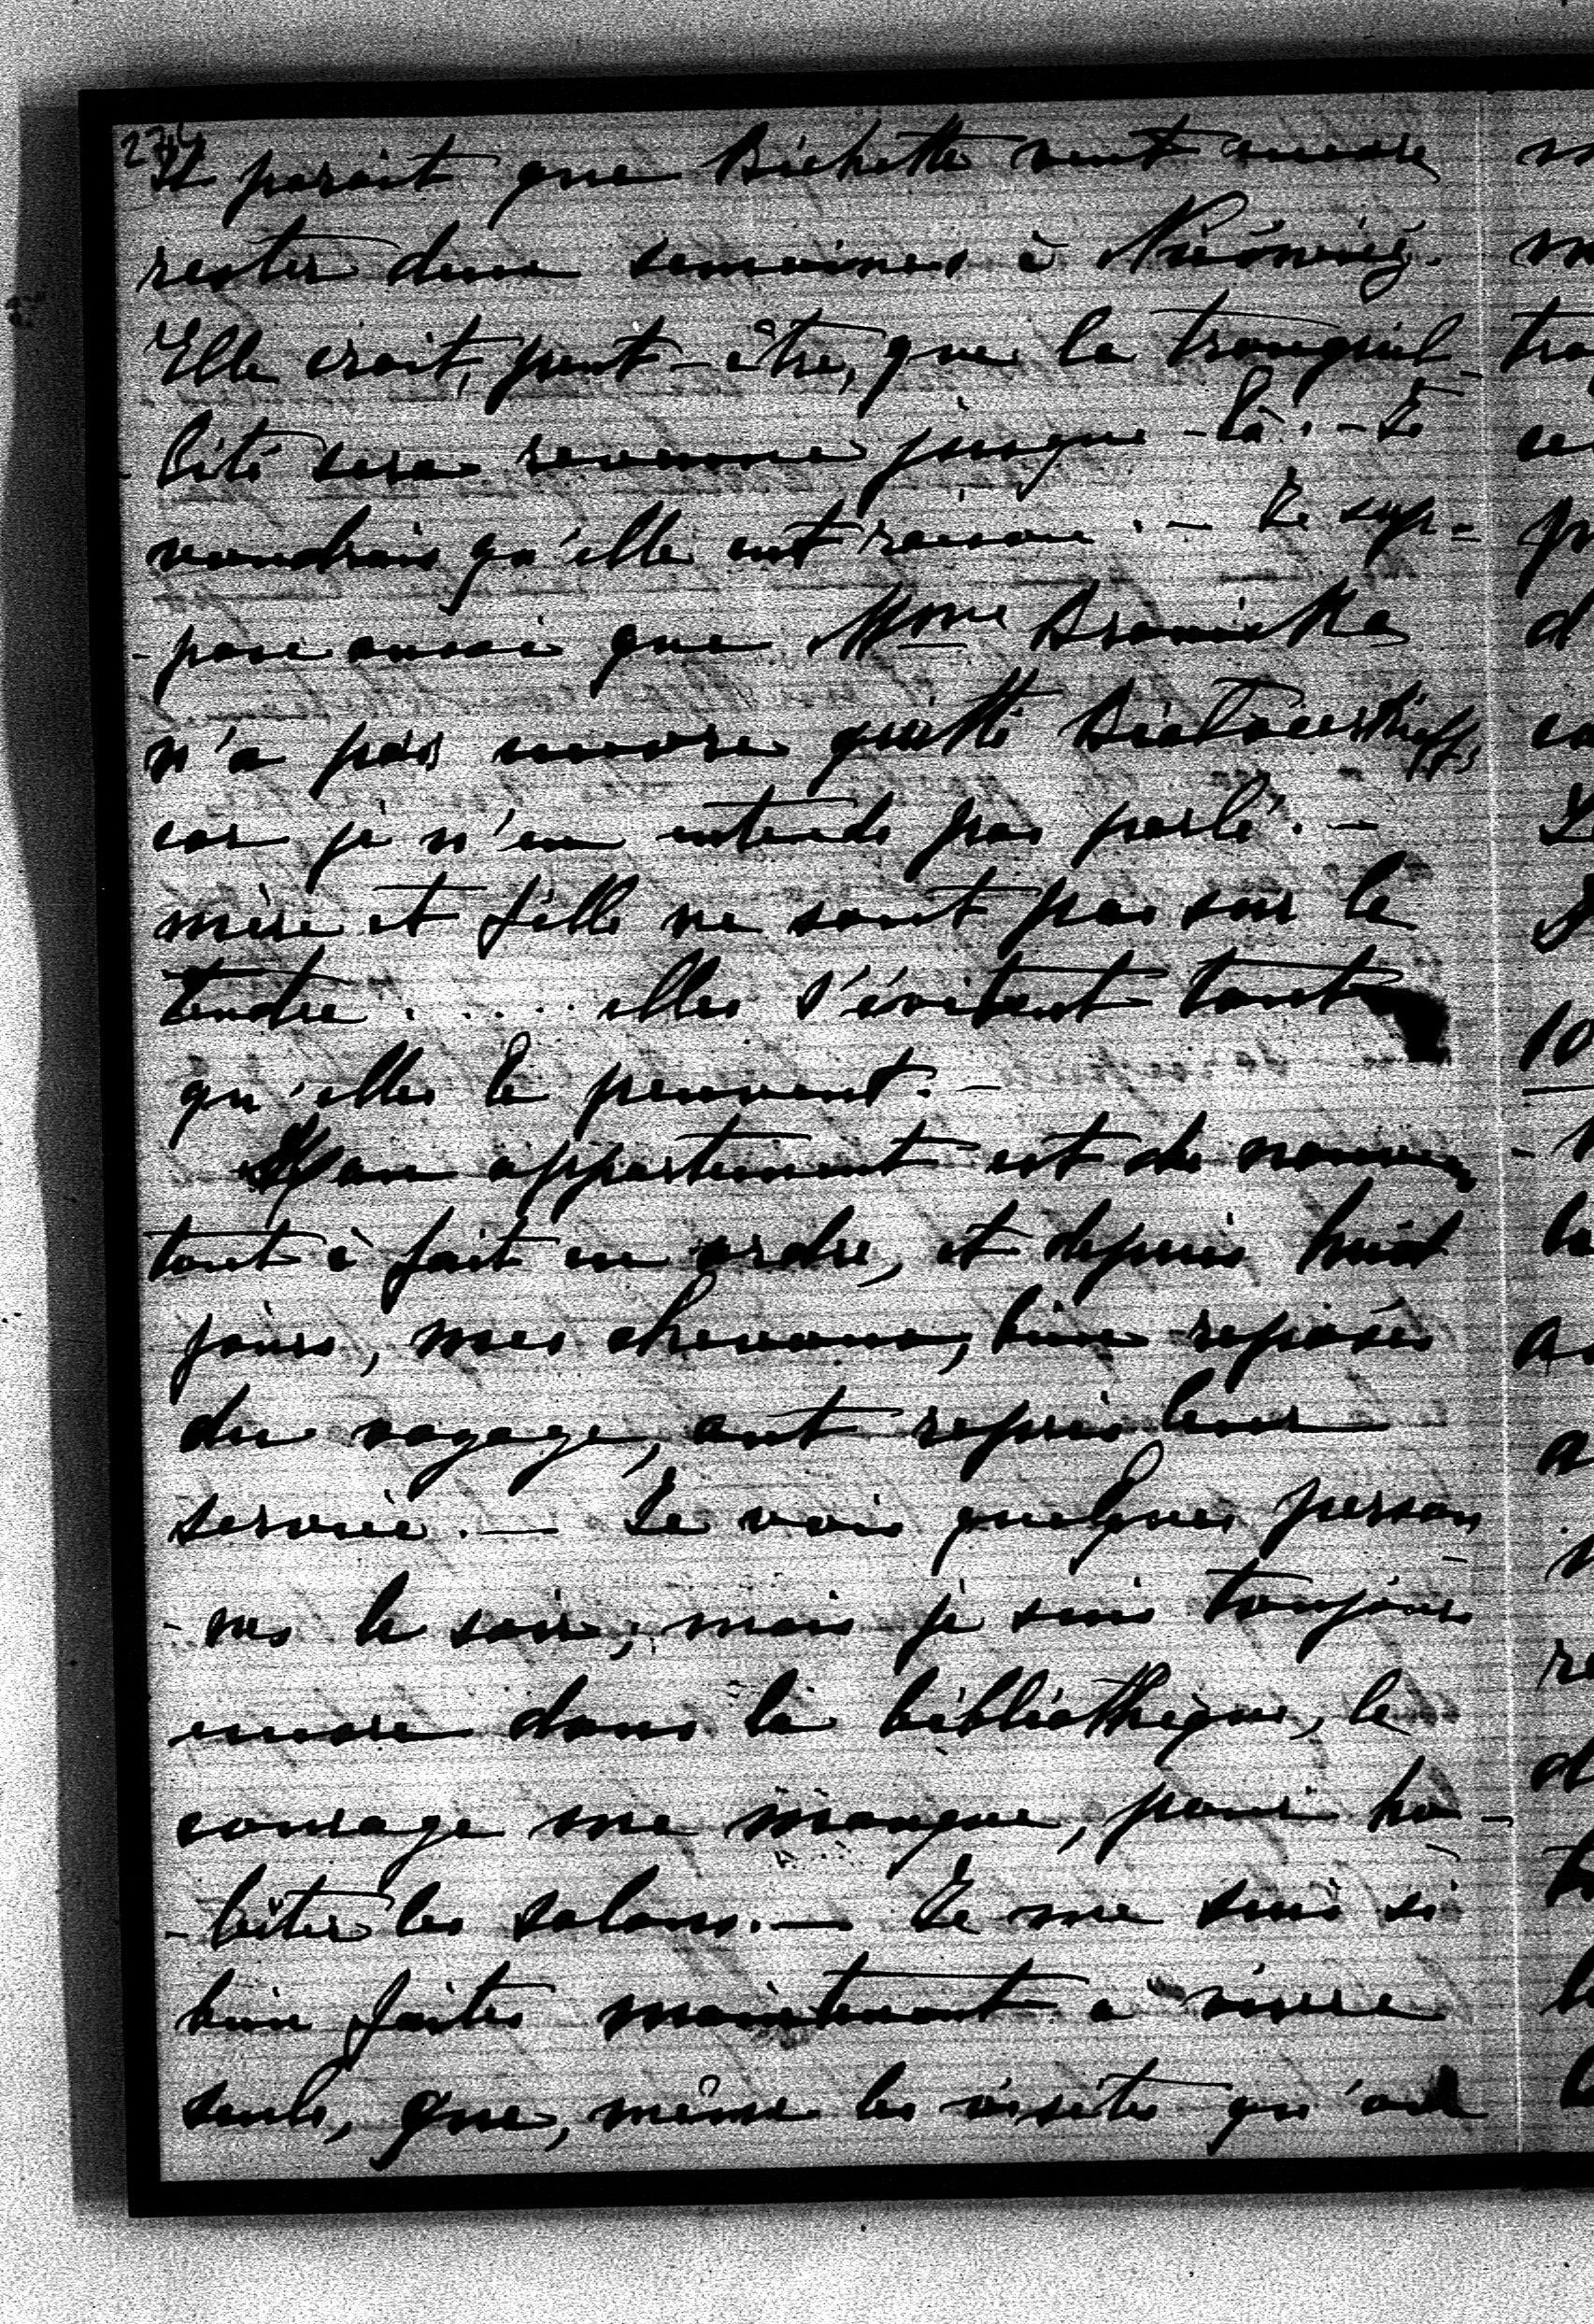 274
Il parait que Bichette veut encore
rester deux semaines à Nieśwież.
Elle croit, peut-être, que la tranquil-
-lité sera revenue jusque-là. - Je
voudrais qu'elle eut raison. - Je sup-
-pose aussi que Mme Branicka
n'a pas encore quitté Białocerkieff,
car je n'en entends pas parlé. -
mère et fille ne sont pas sur le
tendre ..... elles s'évitent tant
qu'elles le peuvent. -
Mon appartement est de nouveau
tout à fait en ordre, et depuis huit
jours, mes chevaux, bien reposés
du voyage, ont repris leur
service. - Je vois quelques person-
-nes le soir; mais je suis toujours
encore dans la bibliothèque, le
courage me manque, pour ha-
-biter les salons. - Je me suis si
bien faite maintenant a vivre
seule, que, même les visites qu'on